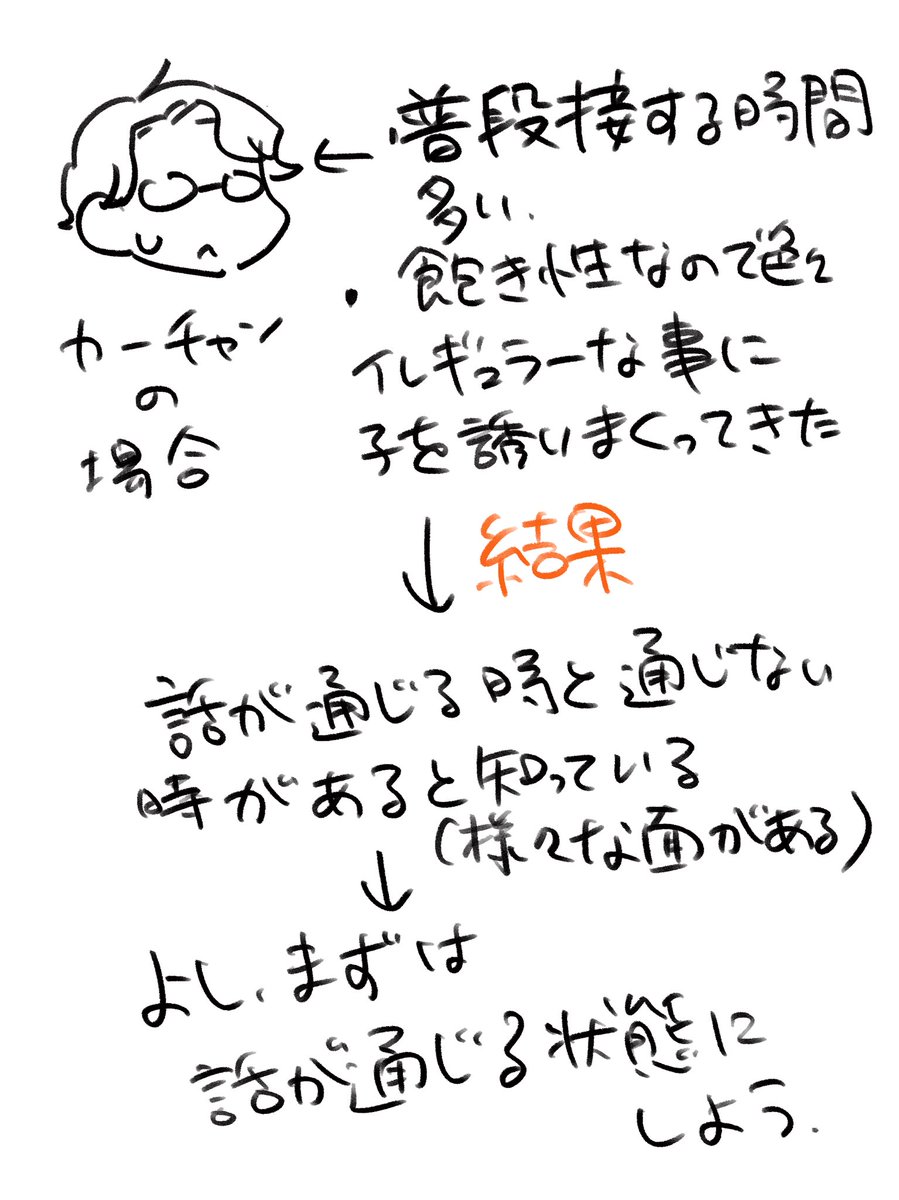 ←普段接する時間
多い.
・飽き性なので色々
イレギュラーな事に
子を誘いまくってきた
カーチャン
の
場合
↓結果
話が通じる時と通じない
時があると知っている
(様々な面がある)
↓
よし、まずは
話が通じる状態に
しよう.